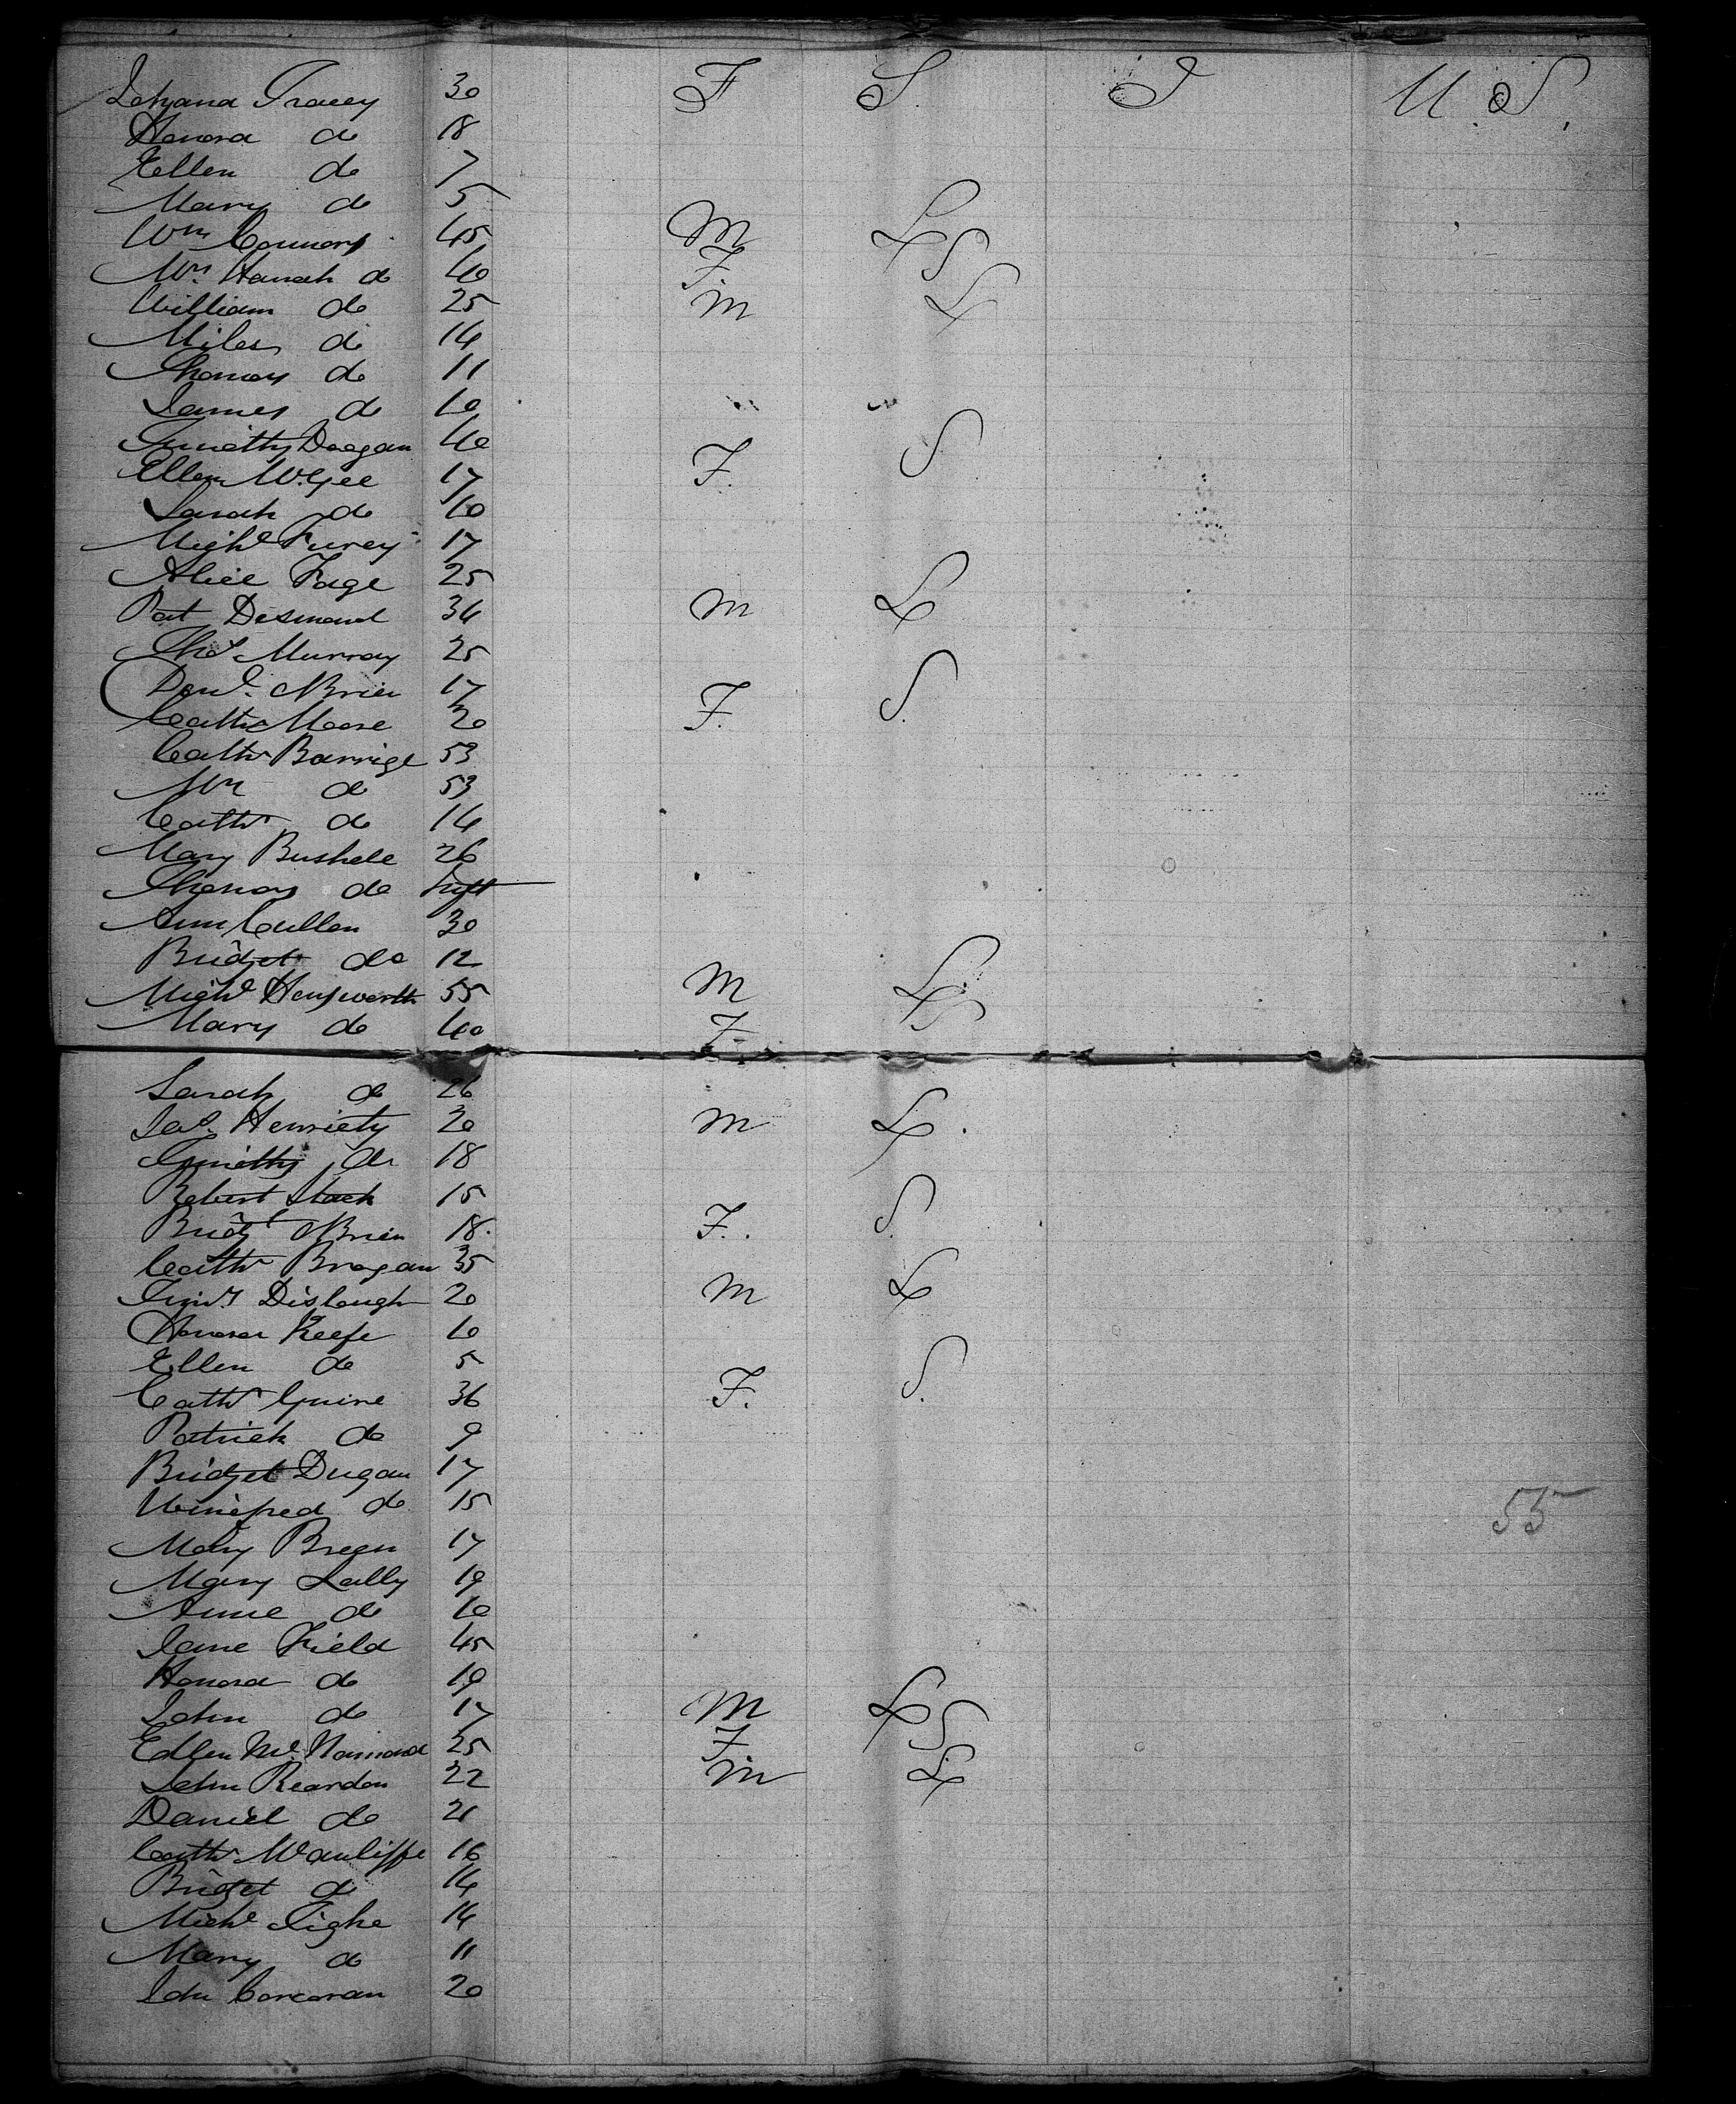 Johana Tracey 30 F S. I U.S.
Honora do 18
Ellen do 7
Mary do 5
Wm Connors 45 M L
Mrs. Hanah do 40 F. S
William do 25 M L
Miles do 14
Thomas do 11
James do 10
Timothy Doegan 40
Ellen McGee 17 F. S
Sarah do 10
Mighl Furey 17
Alice Page 25
Pat Desmond 34 M L
Thos Murray 25
Danl. OBrien 17
Cathe Moore 20 F. S.
Cathe Barrige 53
Wm do 53
Cathe do 14
Mary Bushell 26
Thomas do Inft
Ann Cullen 30
Bridget do 12
Mighl Hensworth 55 M L
Mary do 40 F S
Sarah do 26
Jas. Henriety 20 M L.
Timothy do 18
Robert Stack 15
Bridgt OBrien 18. F. S.
Cathe Brogan 35
Dislough 20 M L
Honora Keefe 10
Ellen do 5
Cathe Guine 36 F. S.
Patrick do 9
Bridget Dugan 17
Winefred do 15 55
Mary Breen 17
Mary Lally 19
Anne do 10
Jane Field 45
Honora do 19
John do 17 M L
Ellen McNamara 25 F S
John Reardon 22 M L
Daniel do 21
Cathe McAuliffe 16
Bridget do 14
Michl Tighe 14
Mary do 11
John Corcoran 20